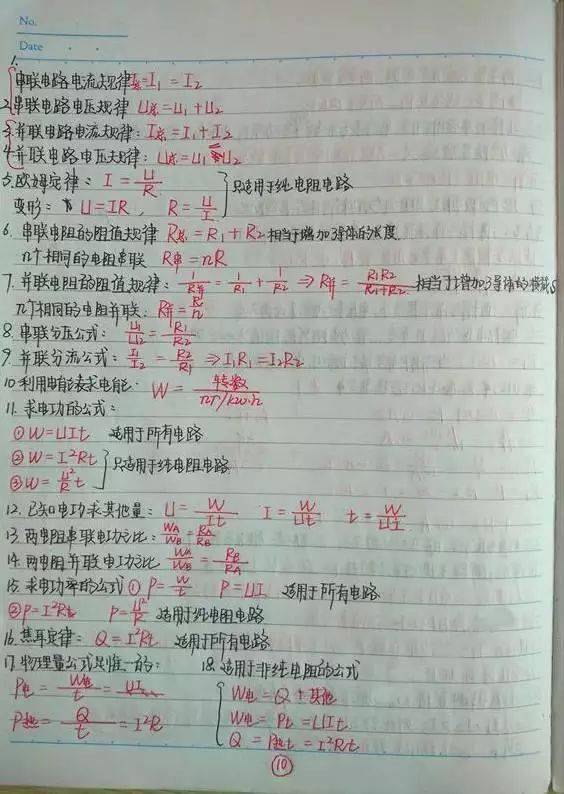 No.
Date
1.
串联电路电流规律I总=I₁=I₂
2.串联电路电压规律 U总=U₁+U₂
3.并联电路电流规律:I总=I₁+I₂
4.并联电路电压规律:U总=U₁=U₂
5.欧姆定律:I=U/R
变形:U=IR,R=U/I }只适用于纯电阻电路
6.串联电阻的阻值规律 R总=R₁+R₂相当于增加导体的长度
n个相同的电阻串联 R串=nR
7.并联电阻的阻值规律:1/R并=1/R₁+1/R₂⇒R并=R₁R₂/R₁+R₂ 相当于增加了导体的横截S
n个相同的电阻并联:R并=R/n
8.串联分压公式:U₁/U₂=R₁/R₂
9.并联分流公式:I₁/I₂=R₂/R₁⇒I₁R₁=I₂R₂
10利用电能表求电能:W=转数/nr/kw·h
11.求电功的公式:
①W=UIt 适用于所有电路
②W=I²Rt
③W=U²/R t }只适用于纯电阻电路
12.已知电功求其他量:U=W/It I=W/Ut t=W/UI
13.两电阻串联电功之比:WA/WB=RA/RB
14.两电阻并联电功之比 WA/WB=RB/RA
15.求电功率的公式①P=W/t P=UI 适用于所有电路
②P=I²R P=U²/R 适用于纯电阻电路
16.焦耳定律:Q=I²Rt 适用于所有电路
17.物理量公式是唯一的: 18.适用于非纯电阻的公式
P电=W电/t=UI W电=Q+其他
P热=Q/t=I²R W电=Pt=UIt
Q=P热t=I²Rt
10